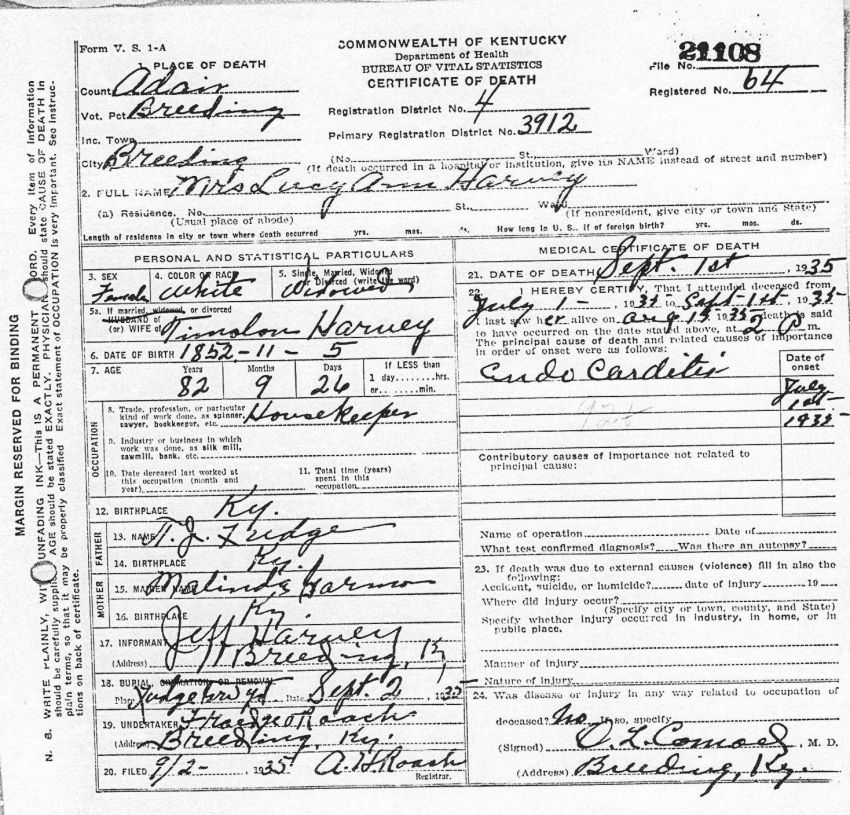 Form V. S. 1-A
COMMONWEALTH OF KENTUCKY
Department of Health
BUREAU OF VITAL STATISTICS
CERTIFICATE OF DEATH
File No. 21108
Registered No. 64
1. PLACE OF DEATH
County Adair
Vot. Pct. Breeding
Inc. Town
City Breeding
Registration District No. 4
Primary Registration District No. 3912
(No. St., Ward)
(If death occurred in a hospital or institution, give its NAME instead of street and number)
2. FULL NAME Mrs Lucy Ann Harvey
(a) Residence. No. St., Ward.
(Usual place of abode) (If nonresident, give city or town and State)
Length of residence in city or town where death occurred yrs. mos. ds. How long in U. S., if of foreign birth? yrs. mos. ds.
PERSONAL AND STATISTICAL PARTICULARS
3. SEX Female
4. COLOR OR RACE White
5. Single, Married, Widowed or Divorced (write the word) Widowed
5a. If married, widowed, or divorced
HUSBAND of
(or) WIFE of Timolon Harvey
6. DATE OF BIRTH 1852-11-5
7. AGE Years Months Days If LESS than
82 9 26 1 day........hrs.
or........min.
OCCUPATION
8. Trade, profession, or particular
kind of work done, as spinner, Housekeeper
sawyer, bookkeeper, etc.
9. Industry or business in which
work was done, as silk mill,
sawmill, bank, etc.
10. Date deceased last worked at
this occupation (month and
year)
11. Total time (years)
spent in this
occupation
12. BIRTHPLACE Ky.
FATHER
13. NAME
14. BIRTHPLACE Ky.
MOTHER
15. MAIDEN NAME Malinda Harmon
16. BIRTHPLACE Ky
17. INFORMANT Jeff Harvey
(Address) Breeding, Ky
18. BURIAL, CREMATION OR REMOVAL
Place Date Sept. 2, 1935
19. UNDERTAKER Roach
(Address) Breeding, Ky.
20. FILED 9/2- 1935 A. H. Roach
Registrar.
MEDICAL CERTIFICATE OF DEATH
21. DATE OF DEATH Sept. 1st, 1935
22. I HEREBY CERTIFY, That I attended deceased from
July 1-, 1935 to Sept-1st-, 1935
I last saw her alive on Aug 15 1935 death is said
to have occurred on the date stated above, at 2 P m.
The principal cause of death and related causes of importance
in order of onset were as follows:
Date of
onset
Endo Carditis
July
1st-
1935
Contributory causes of importance not related to
principal cause:
Name of operation Date of
What test confirmed diagnosis? Was there an autopsy?
23. If death was due to external causes (violence) fill in also the
following:
Accident, suicide, or homicide? date of injury 19
Where did injury occur?
(Specify city or town, county, and State)
Specify whether injury occurred in industry, in home, or in
public place.
Manner of injury
Nature of injury
24. Was disease or injury in any way related to occupation of
deceased? No If so, specify
(Signed) M. D.
(Address) Breeding, Ky.
MARGIN RESERVED FOR BINDING
N. B. WRITE PLAINLY, WITH UNFADING INK—This is A PERMANENT RECORD. Every item of information
should be carefully supplied. AGE should be stated EXACTLY. PHYSICIANS should state CAUSE OF DEATH in
plain terms, so that it may be properly classified. Exact statement of OCCUPATION is very important. See instruc-
tions on back of certificate.